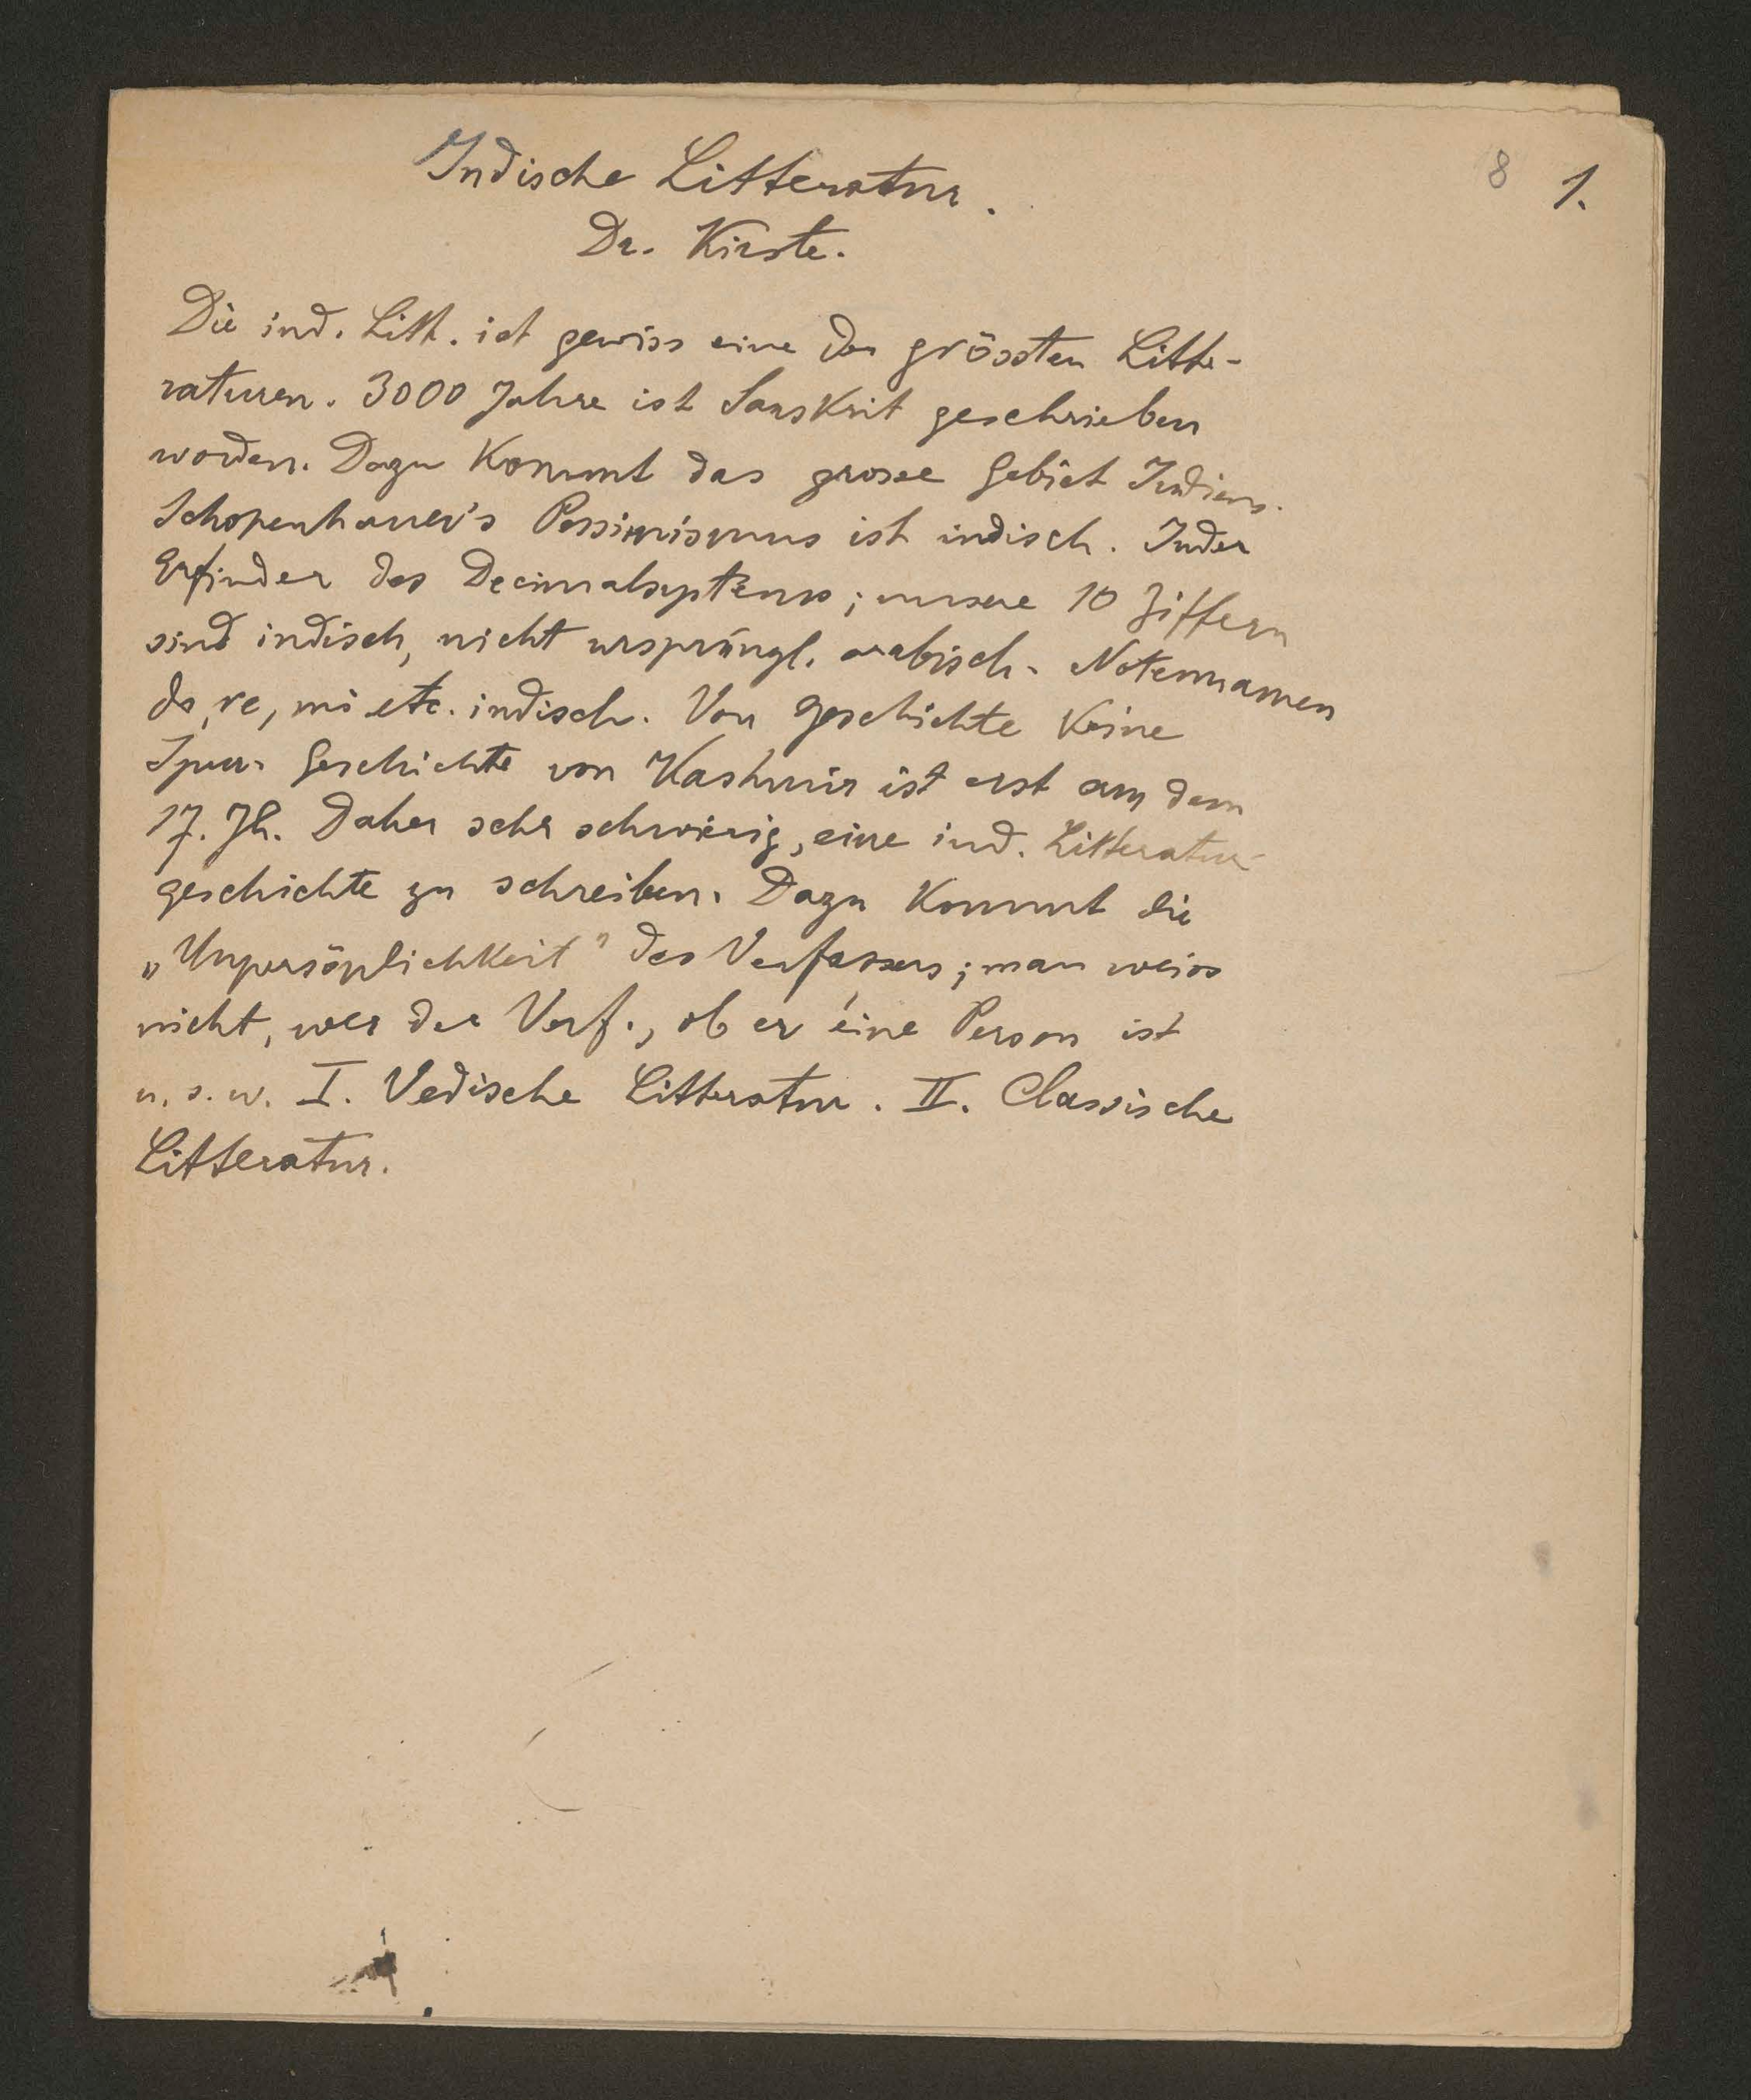 8 1.
Indische Litteratur.
Dr. Kirste.
Die ind. Litt. ist gewiss eine der grössten Litte-
raturen. 3000 Jahre ist Sanskrit geschrieben
worden. Dazu kommt das grosse Gebiet Indiens.
Schopenhauer's Pessimismus ist indisch. Inder
Erfinder des Decimalsystems; unsere 10 Ziffern
sind indisch, nicht ursprüngl. arabisch. Notennamen
do, re, mi etc. indisch. Von Geschichte keine
Spur. Geschichte von Kashmir ist erst aus dem
17. Jh. Daher sehr schwierig, eine ind. Litteratur-
geschichte zu schreiben. Dazu kommt die
„Unpersönlichkeit" des Verfassers; man weiss
nicht, wer der Verf., ob er éine Person ist
u. s. w. I. Vedische Litteratur. II. Classische
Litteratur.